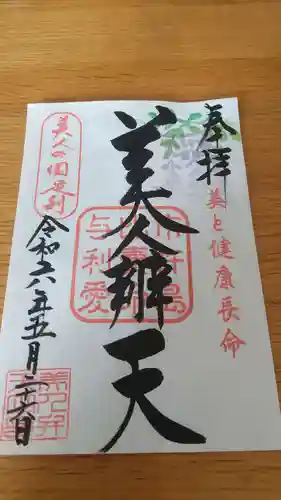 奉拝
美と健康長命
美人辨天
美人の国足利
令和六年五月二十六日